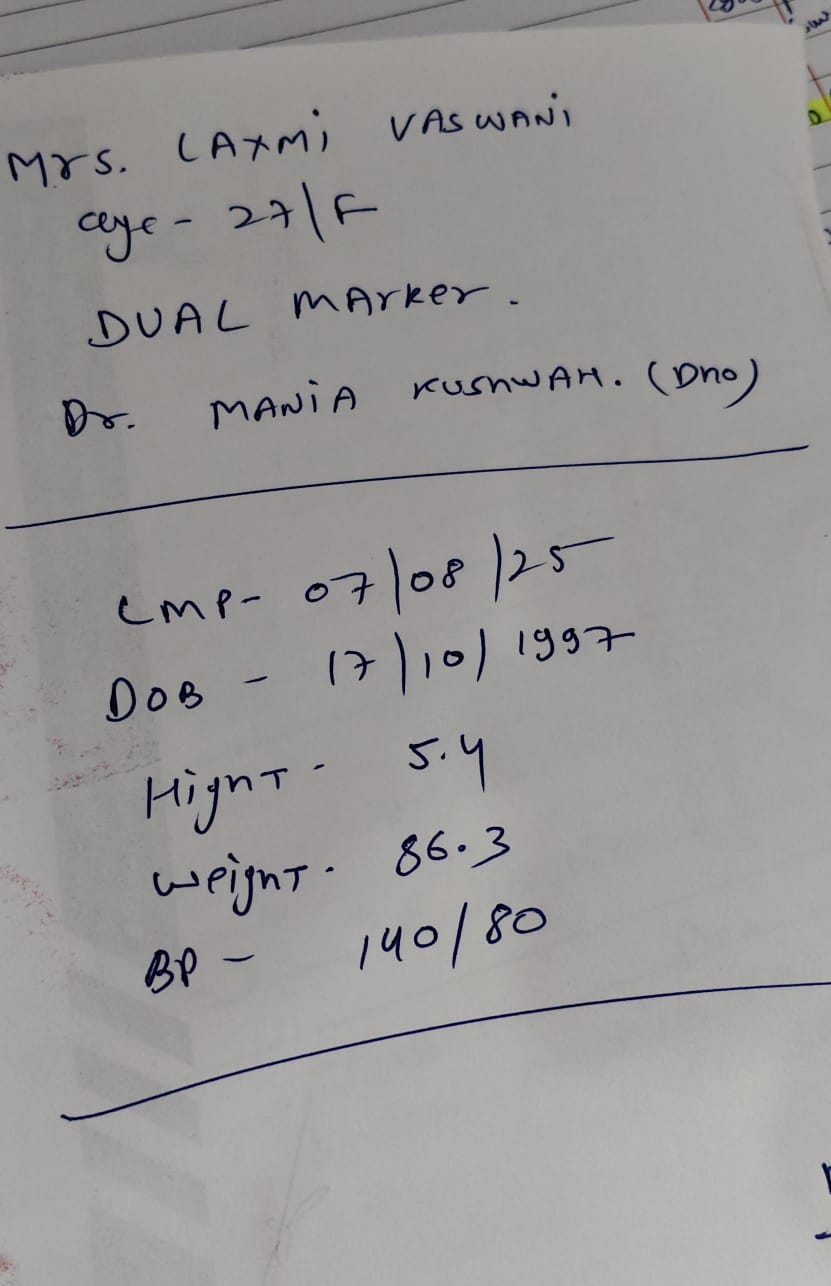 Mrs. LAXMi VASWANi
age - 27/F
DUAL MArker.
Dr. MANiA KUSHWAH. (DNO)
LMP- 07/08/25
DOB - 17/10/1997
Hight - 5.4
weight. 86.3
BP - 140/80